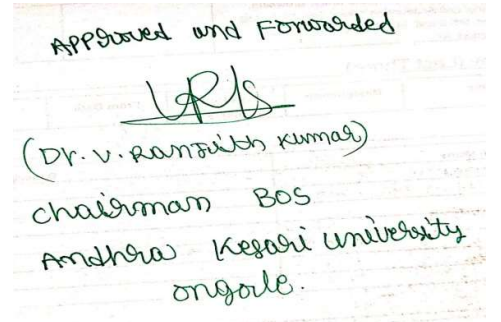 Approved and Forwarded
(Dr. V. Ranjith Kumar)
Chairman BOS
Andhra Kesari University
Ongole.